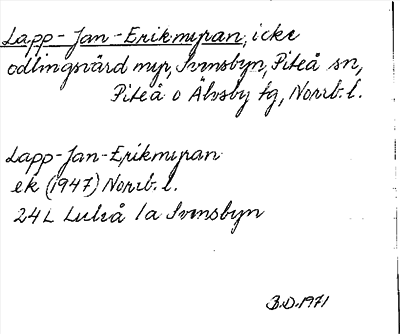 Lapp-Jan-Erikmyran, icke
odlingsvärd myr, Svensbyn, Piteå sn,
Piteå o Älvsby tg, Norrb. l.
Lapp-Jan-Erikmyran
ek (1947) Norrb. l.
24L Luleå 1a Svensbyn
B.D. 1971